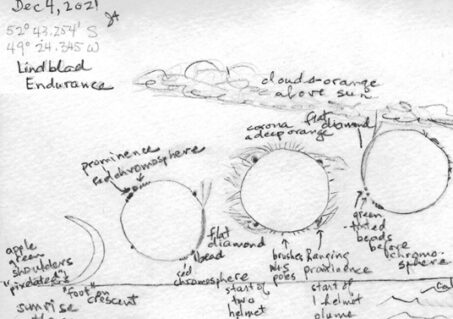 Dec 4, 2021
52° 43.254' S
49° 24.345' W
Lindblad
Endurance
clouds-orange
above sun
corona
a deep orange
flat
diamond
prominence
red chromosphere
flat
diamond
bead
red
chromosphere
apple
green
shoulders
"pixelated"
"foot" on
crescent
sunrise
brushes
poles
Hanging
prominence
start of
two
helmet
start of
1 helmet
plume
green
-tinted
beads
before
chromo-
sphere